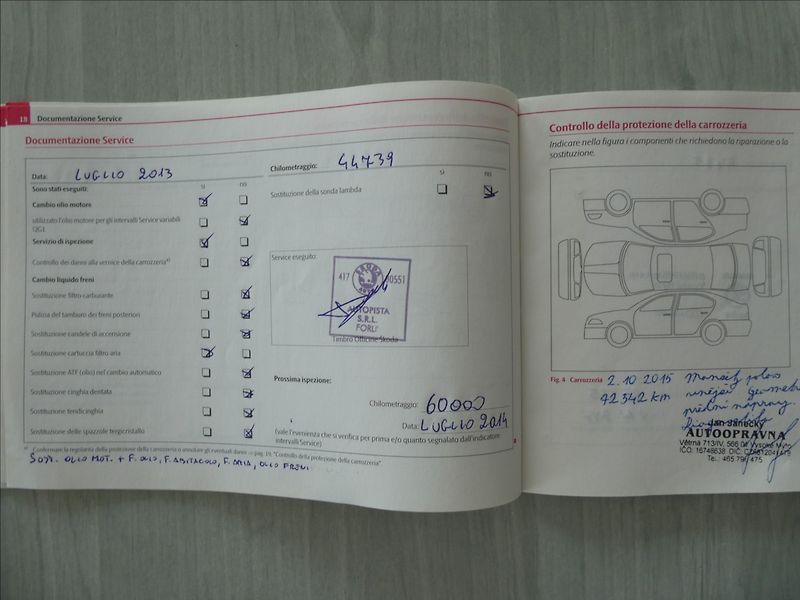 18 Documentazione Service
Documentazione Service
Data: LUGLIO 2013
Chilometraggio: 44739
Sono stati eseguiti: sì no
Cambio olio motore
utilizzato l'olio motore per gli intervalli Service variabili
(QG1
Servizio di ispezione
Controllo dei danni alla vernice della carrozzeria a)
Cambio liquido freni
Sostituzione filtro carburante
Pulizia del tamburo dei freni posteriori
Sostituzione candele di accensione
Sostituzione cartuccia filtro aria
Sostituzione ATF (olio) nel cambio automatico
Sostituzione cinghia dentata
Sostituzione tendicinghia
Sostituzione delle spazzole tergicristallo
sì no
Sostituzione della sonda lambda
Service eseguito:
417 ŠKODA 00551
AUTO
AUTOPISTA
S.R.L.
FORLI'
Timbro Officine Škoda
Prossima ispezione:
Chilometraggio: 60000
Data: LUGLIO 2014
(vale l'evenienza che si verifica per prima e/o quanto segnalato dall'indicatore
intervalli Service)
a) Confermare la regolarità della protezione della carrozzeria o annotare gli eventuali danni ⇒ pag. 19, "Controllo della protezione della carrozzeria"
SOST. OLIO MOT. + F. OLIO, F. ABITACOLO, F. ARIA, OLIO FRENI
Controllo della protezione della carrozzeria
Indicare nella figura i componenti che richiedono la riparazione o la
sostituzione.
Fig. 4 Carrozzeria
2.10 2015
72 342 km
geometri
přední nápravy
Jan Janecký
AUTOOPRAVNA
Větrná 713/IV, 566 01 Vysoké Mýto
IČO: 16748638 DIČ:
Tel.: 465